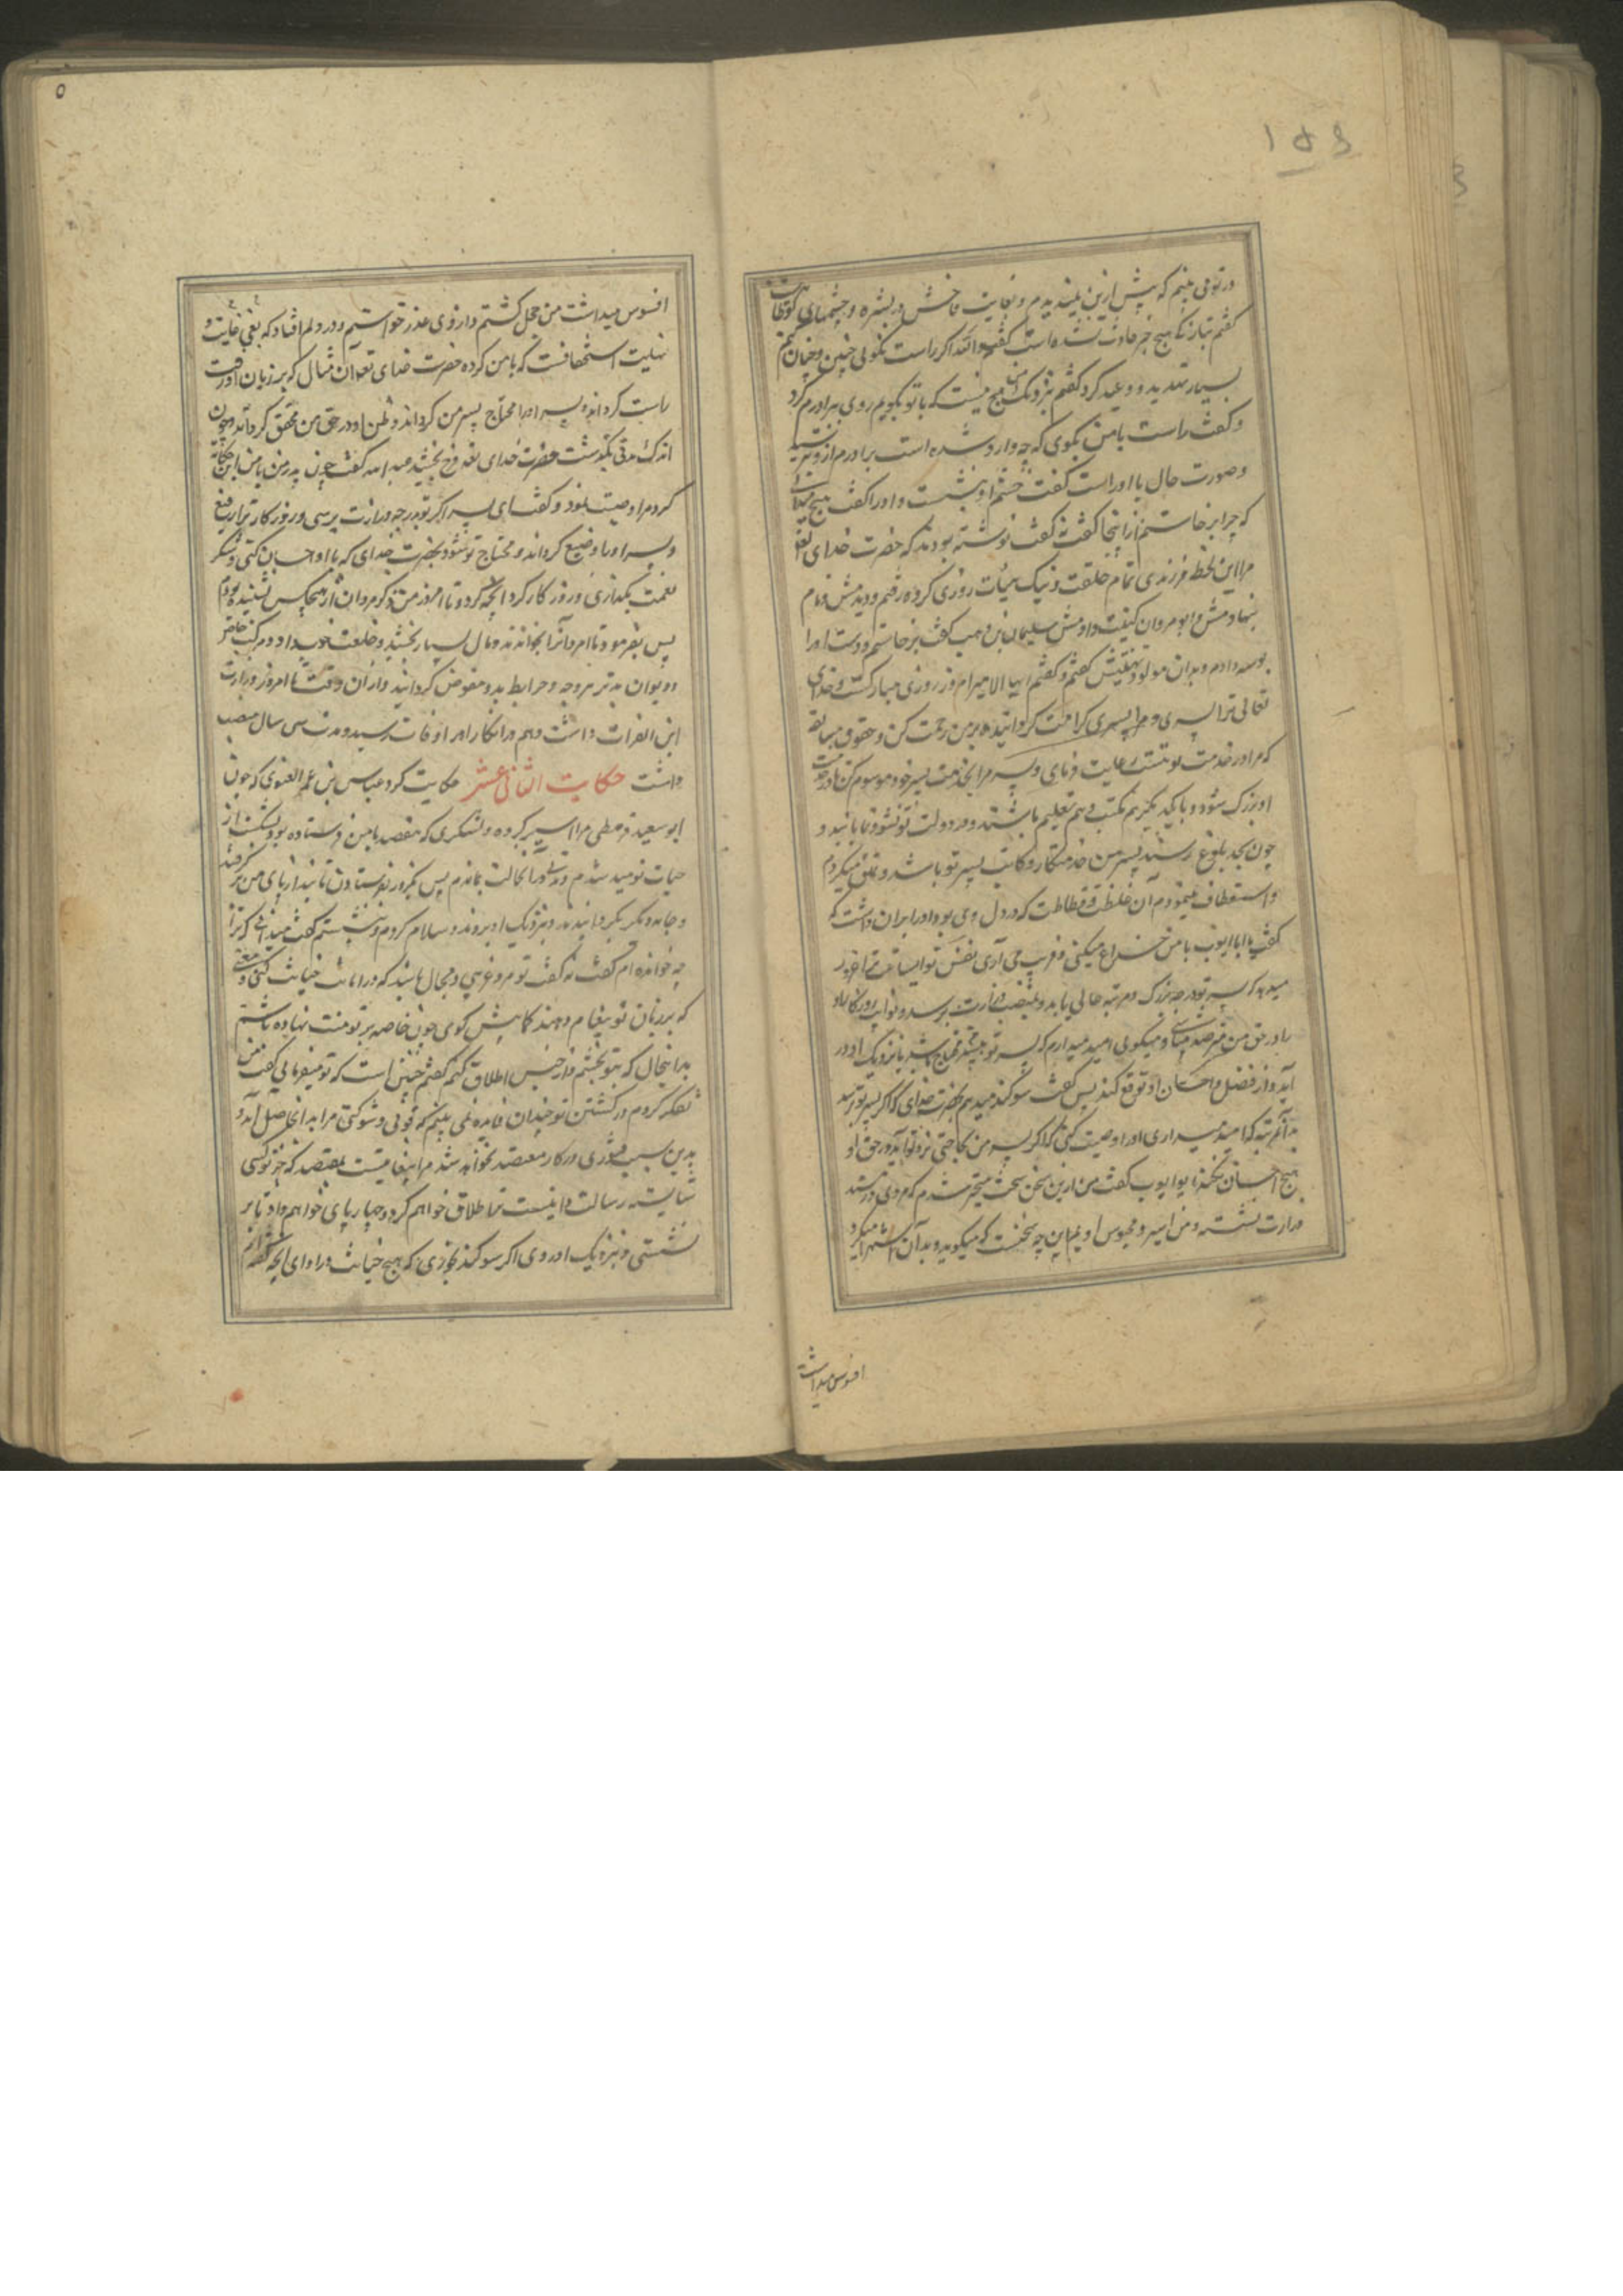 ۱۵۶
در تو می بینم که پیش ازین نمیدیدم و بغایت فاحش در بشره و چشمهای تو
گفتم تبازگی هیچ چیز حادث نشده است گفت والله اگر راست نگوئی چنین و چنان کنم
بسیار تهدید و وعید کرد گفتم نزدیک من هیچ نیست که با تو بگویم روی ببرادرم کرد
و گفت راست با من بگوی که چه وارد شده است برادرم ازو بترسید
و صورت حال با او راست گفت خشم او بنشست و او را گفت هیچ میدانی
که چرا برخاستم از اینجا گفت نه گفت نوشته بودند که حضرت خدای تعالی
مرا این لحظه فرزندی تمام خلقت و نیک هیأت روزی کرده رفتم و دیدمش و نام
بنهادمش و ابو مروان کنیت دادمش سلیمان بن وهب گفت برخاستم و دست او را
بوسه دادم و بدان مولود تهنیتش گفتم و گفتم ایها الامیر امروز روزی مبارکست و خدای
تعالی ترا پسری و مرا پسری کرامت گردانیده بر من رحمت کن و حقوق سابقه
که مرا در خدمت تو هست رعایت فرمای و پسر مرا بخدمت پسر خود موسوم کن تا در خدمت
او بزرک شود و با یکدیگر هم مکتب و هم تعلیم باشند و در دولت تو نشو و نما یابند و
چون بحد بلوغ رسند پسر من خدمتکار و کاتب پسر تو باشد و تملق میکردم
و استعطاف مینمودم آن غلظت و فظاظت که در دل وی بود او را بران داشت که
گفت یا ابا ایوب با من خداع میکنی و فریب می آری نفس تو
میدهد که پسر تو بدرجه بزرک و مرتبه عالی یابد و بمنصب وزارت برسد و نوایب روزگار او
را در حق من مترصد میباشی و میگوی امید میدارم که پسر تو محتاج باشد تا نزدیک او در
آید و از فضل و احسان او توقع کند پس گفت سوگند میدهم بحضرت خدای که اگر پسر تو برسد
بدان مرتبه که امید میداری او را وصیت کنی که اگر پسر من بحاجتی نزد تو آید در حق او
هیچ احسان نکند ابو ایوب گفت من ازین سخن سخت متحیر شدم که مردی در مسند
وزارت نشسته و من اسیر و محبوس اویم این چه سخنست که میگوید و بدان استهزا میکرد
افسوس میداشت
۵
افسوس میداشت من خجل گشتم و از وی عذر خواستم و در دلم افتاد که بغی بغایت و
نهایت استخفافست که با من کرده حضرت خدای تعالی آن مثال که بر زبان او رفت
راست گرداند و پسر او را محتاج پسر من گرداند و ظن او در حق من محقق گرداند و چون
اندک مدتی بگذشت حضرت خدای تعالی فرج بخشید عبد الله گفت چون پدر من با من این حکایت
کرد مرا وصیت نمود و گفت ای پسر اگر تو بدرجه وزارت برسی و روزگار ترا رفیع
و پسر او را وضیع گرداند و محتاج تو شود بحضرت خدای که با او احسان کنی و شکر
نعمت بگذاری و روزگار کرد آنچه کرد و تا امروز من ذکر مروان از هیچکس نشنیده بودم
پس بفرمود تا مروانرا بخواندند و مال بسیار بخشید و خلعت خوب داد و مرکب خاص
و دیوان برید و خرایط بدو مفوض گردانید و از آن وقت تا امروز وزارت
ابن الفرات داشت و هم در انکار امر او فات رسید و مدت سی سال منصب
داشت حکایت الثانی عشر حکایت کرد عباس بن عمر الغنوی که چون
ابو سعید قرمطی مرا اسیر کرد و لشکری که معتضد با من فرستاده بود بشکست از
حیات نومید شدم و مدتی در آن حالت بماندم پس یکروز بفرستادند تا بند از پای من بر گرفتند
و جامه دیگر بگردانیدند و بنزدیک او بردند و سلام کردم و بنشستم گفت میدانی که ترا
چه خوانده ام گفت نه گفت تو مرد عربی و محال باشد که در امانت خیانت کنی و
که بر زبان تو پیغام دهند کما بیش گوی چون خاصه بر تو منت نهاده باشم
بدانحال که بتو بخشم و از حبس اطلاق کنم گفتم چنین است که تو میفرمائی گفت من
تفکر کردم در کشتن تو چندان فایده نمی بینم که قوتی و شوکتی مرا بدان حاصل آید و
بدین سبب فتوری در کار معتضد نخواهد شد مرا پیغامیست بمعتضد که جز تو کسی
شایسته رسالت نیست ترا اطلاق خواهم کرد و چهارپای خواهم داد تا بر
نشستی و نزدیک او روی اگر سوگند خوری که هیچ خیانت در ادای آنچه